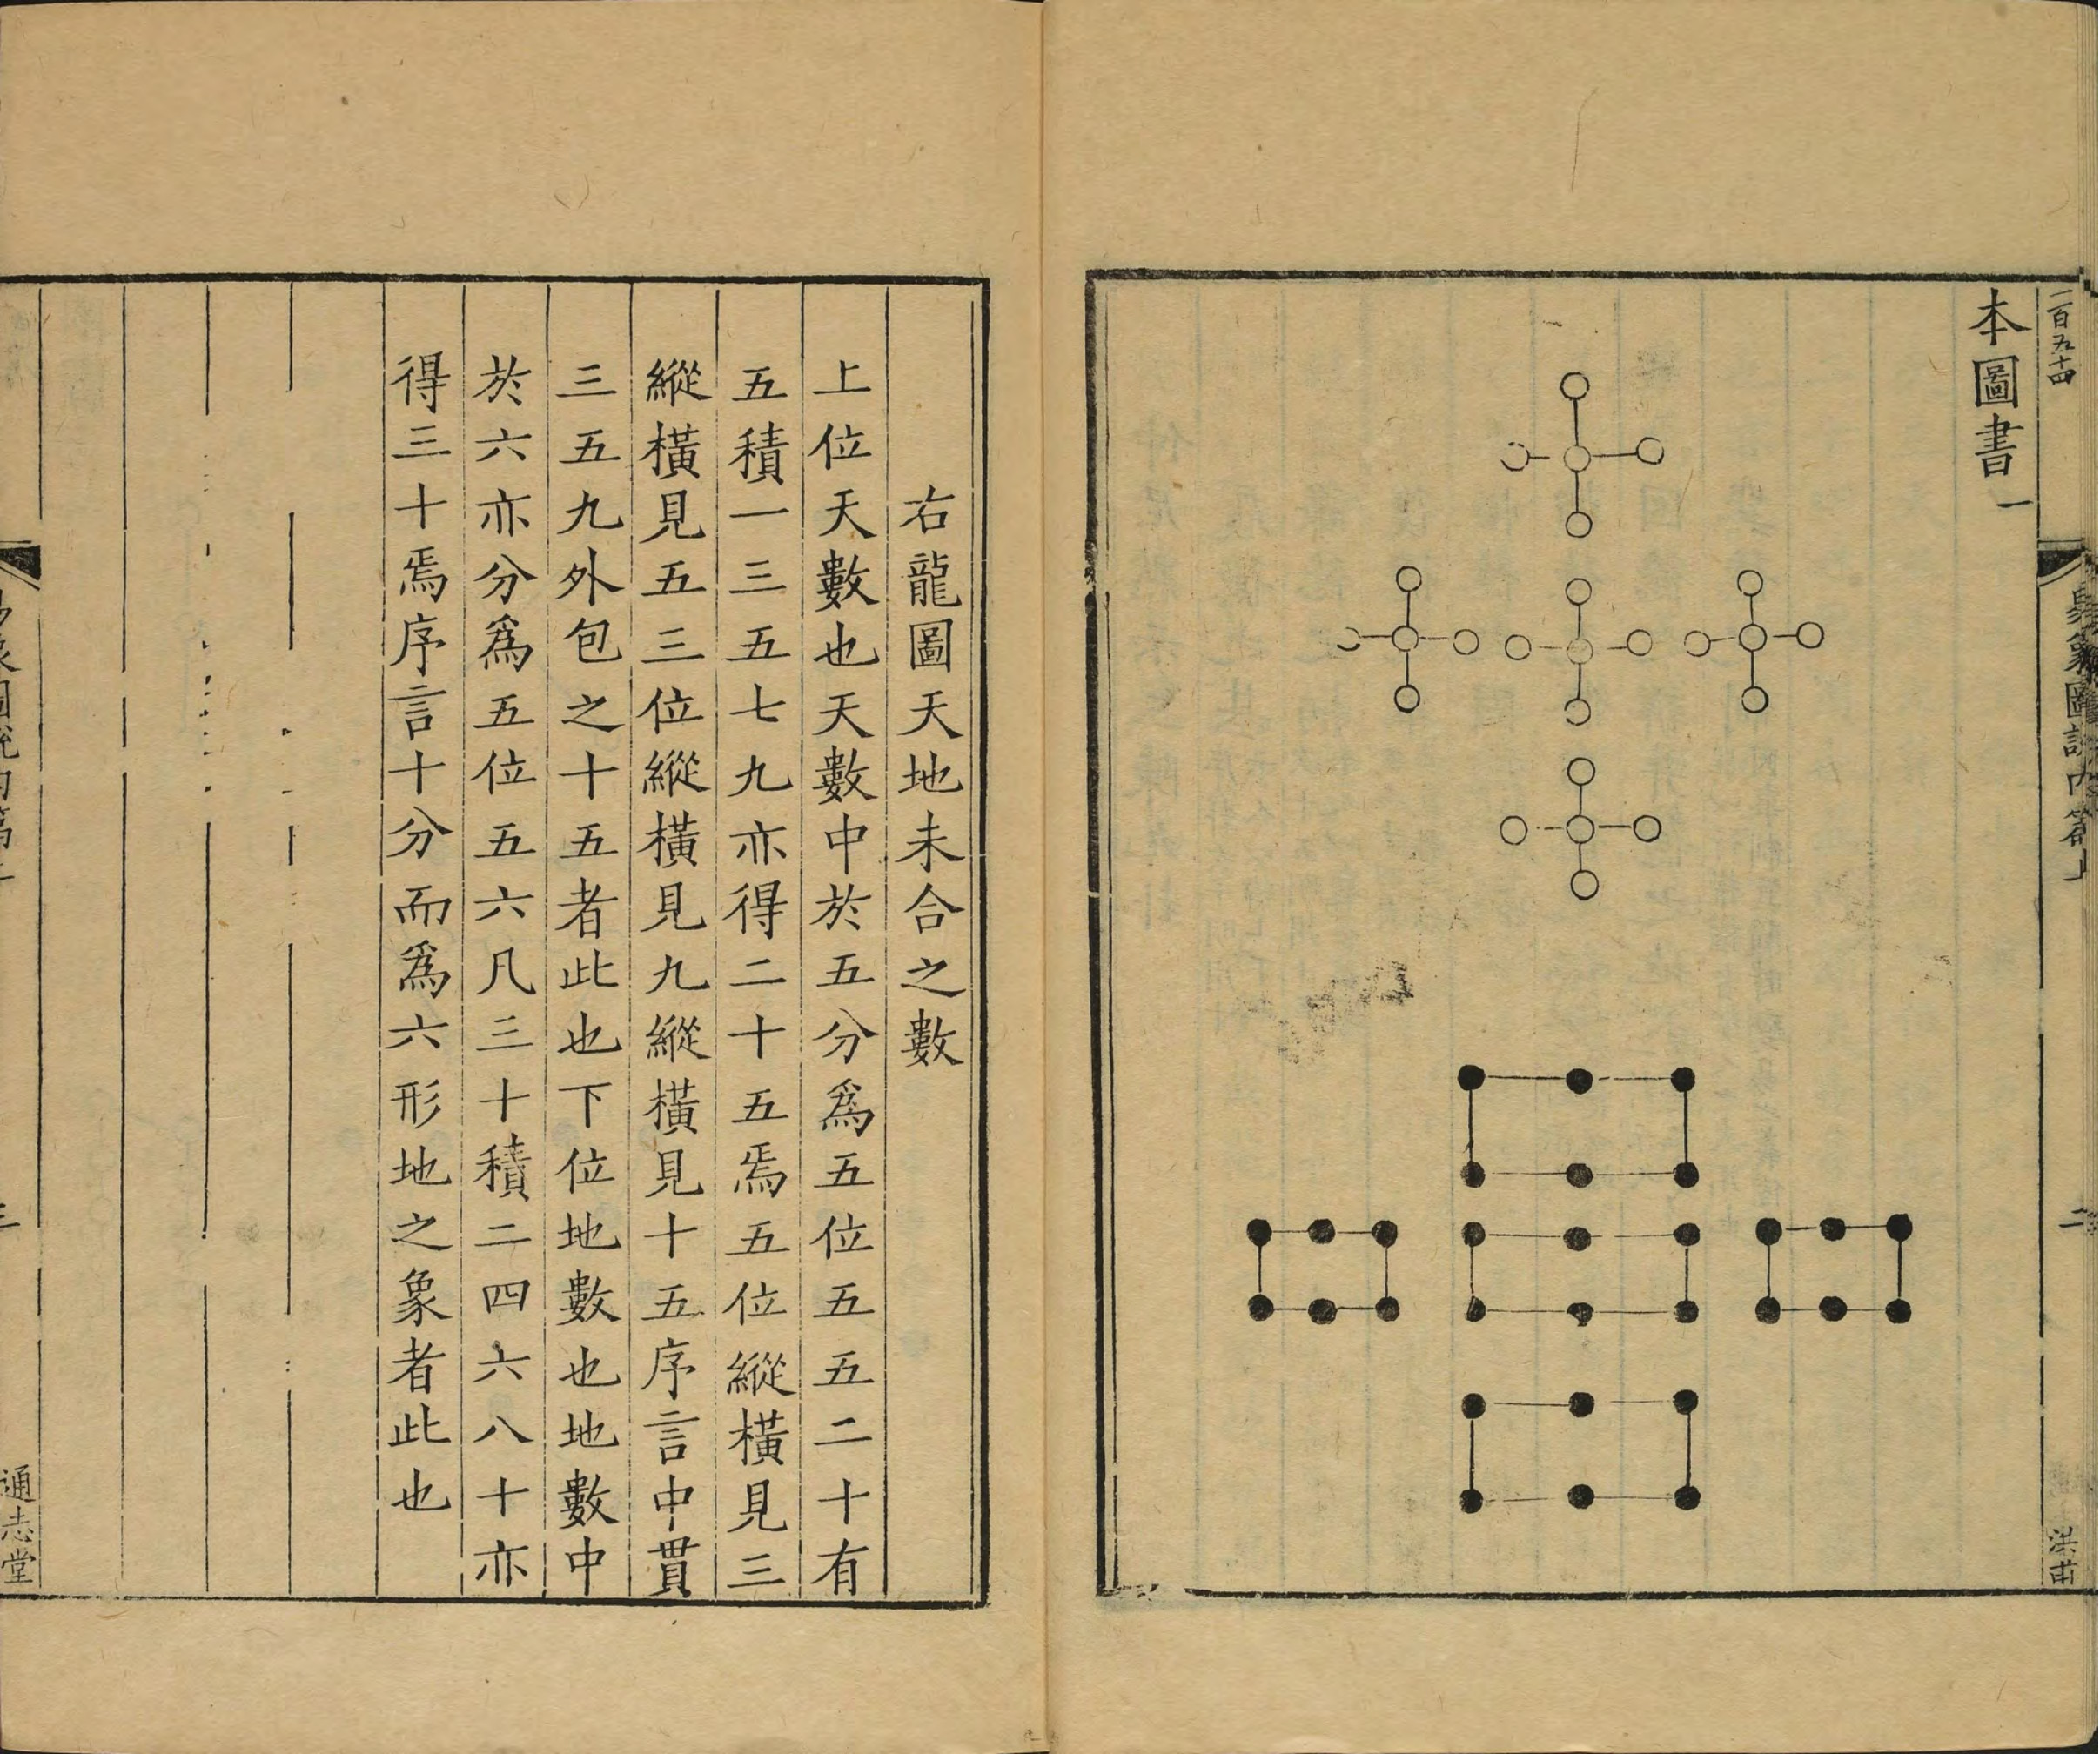 一百五十四
本圖書一
象圖說內篇上
二
洪甫
右龍圖天地未合之數
上位天數也天數中於五分爲五位五五二十有
五積一三五七九亦得二十五焉五位縱橫見三
縱橫見五三位縱橫見九縱橫見十五序言中貫
三五九外包之十五者此也下位地數也地數中
於六亦分爲五位五六凡三十積二四六八十亦
得三十焉序言十分而爲六形地之象者此也
象圖說內篇上
三
通志堂